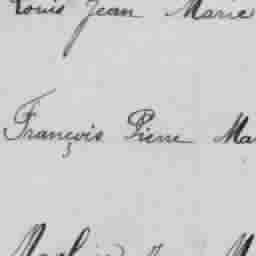 Louis Jean Marie
François Pierre Ma